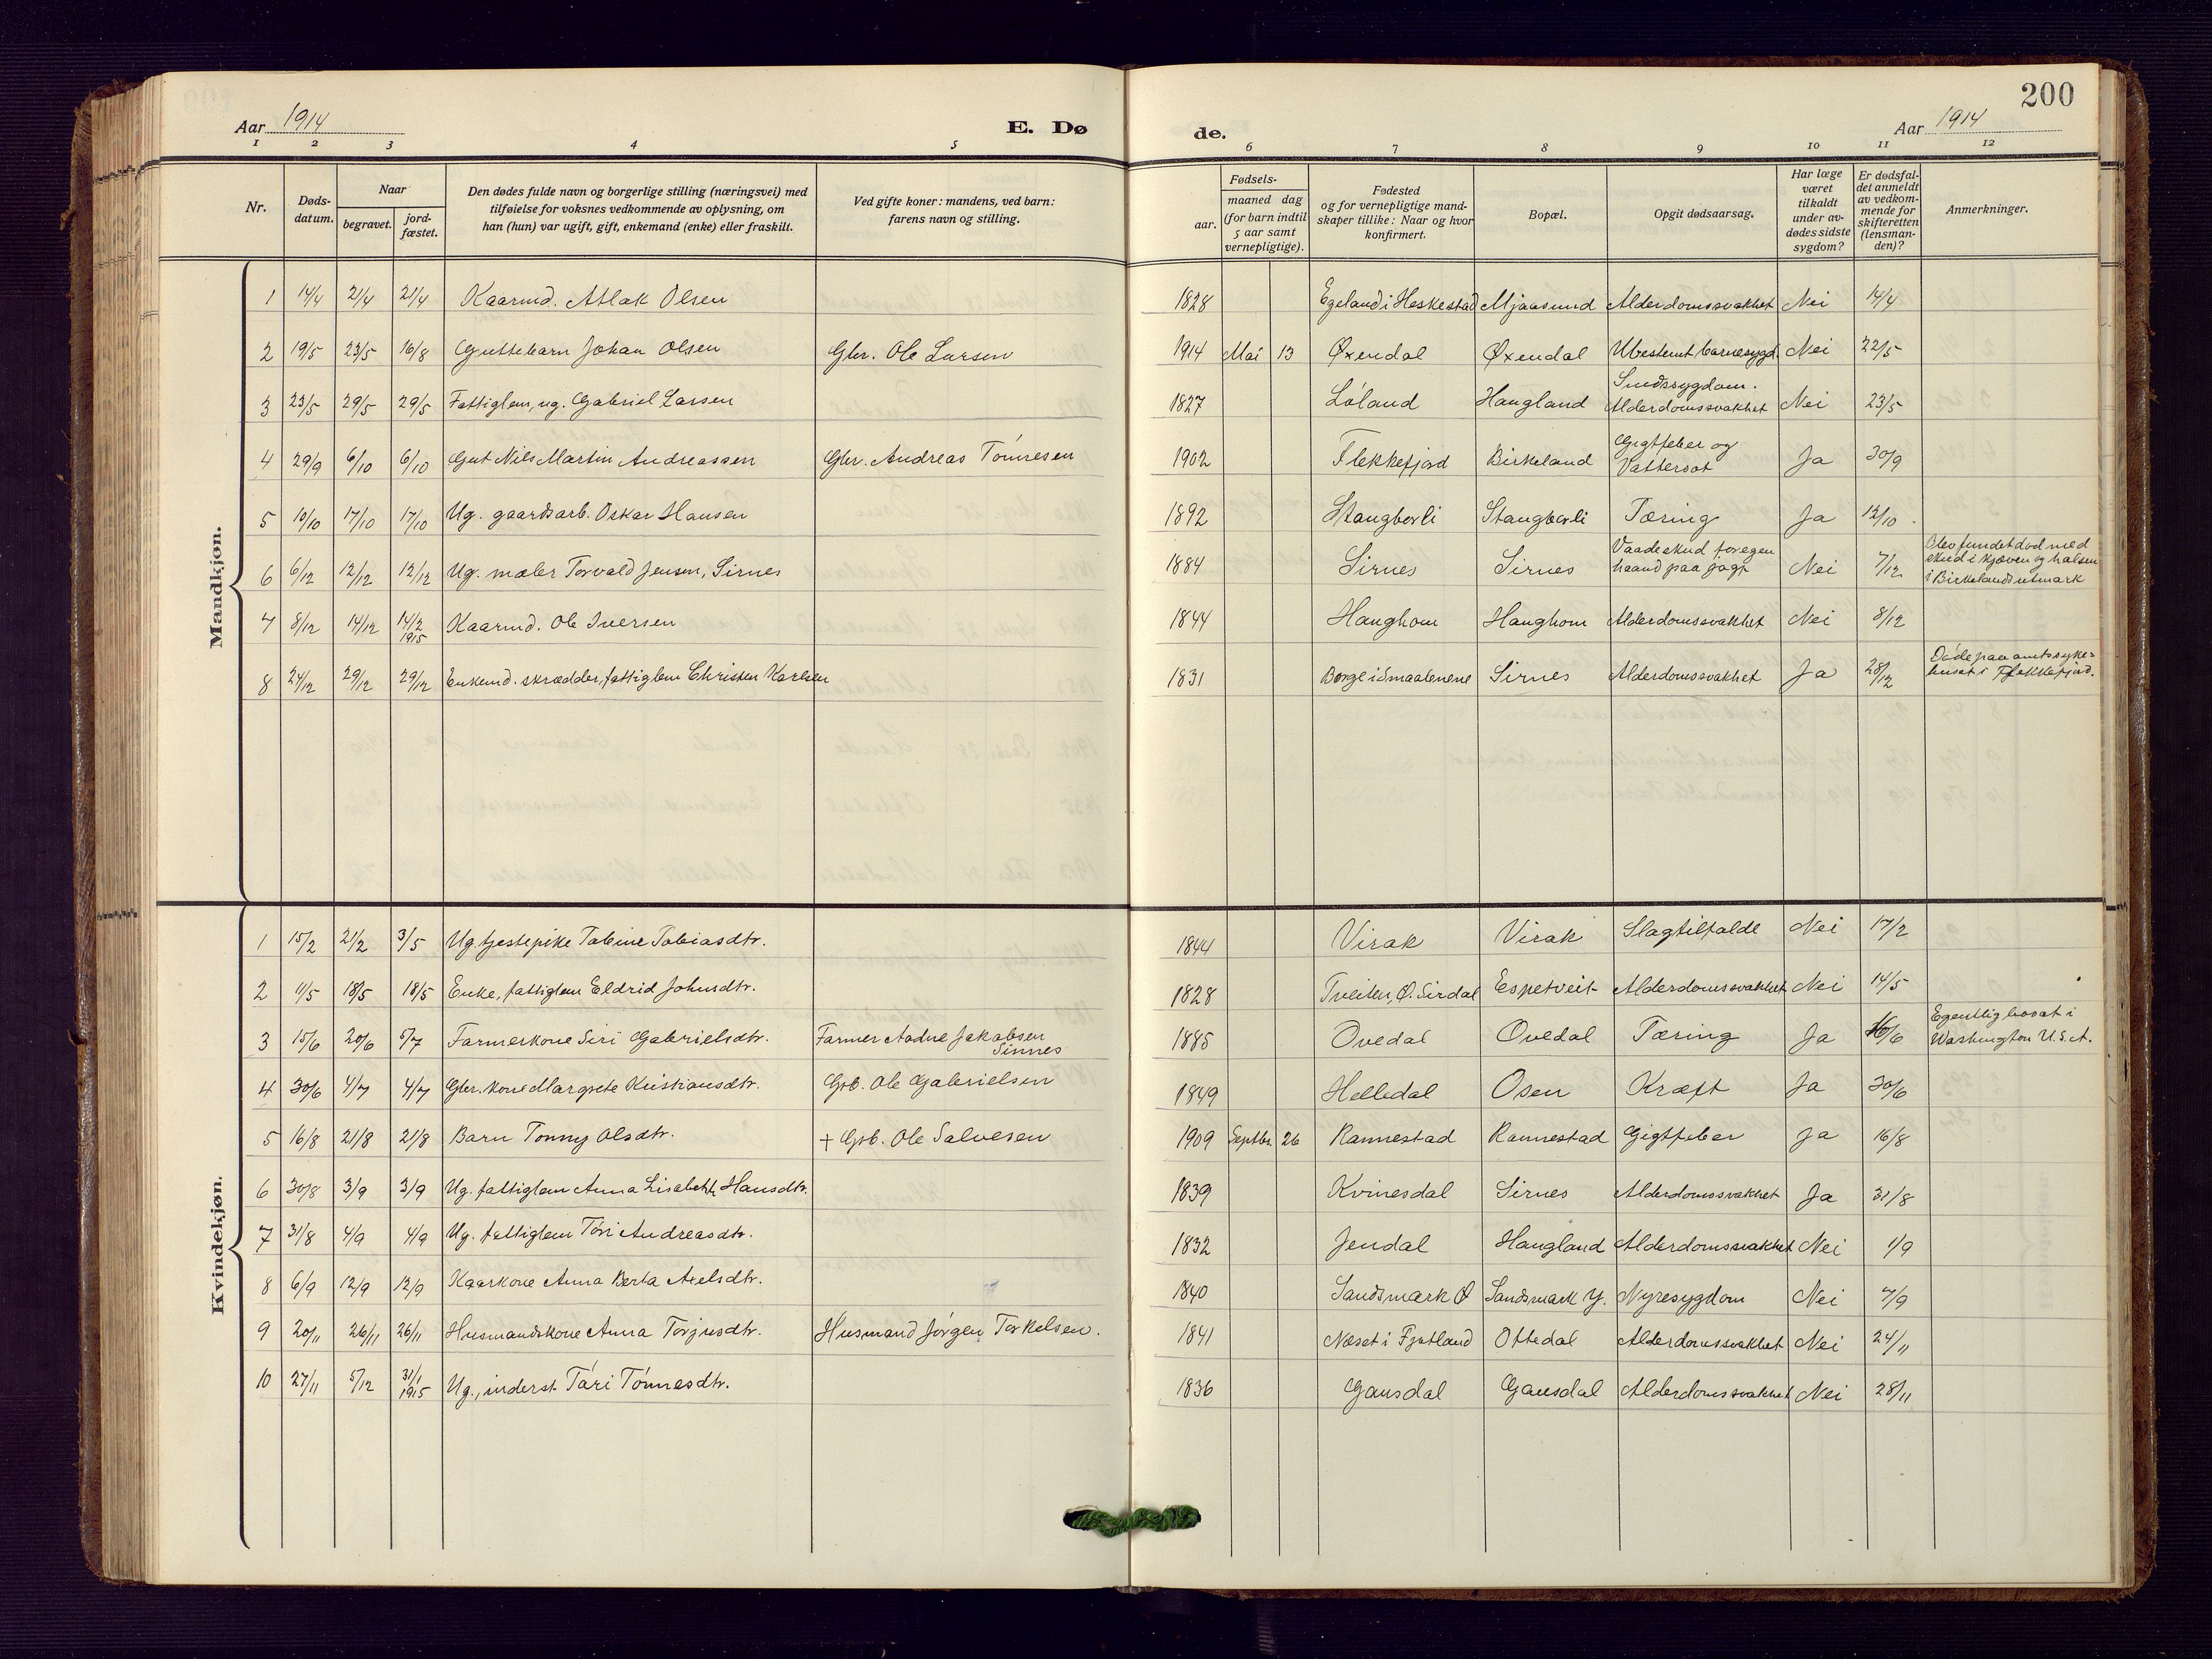 200
Aar 1914
E. Dø
de.
Aar 1914
1 2 3 4 5 6 7 8 9 10 11 12
Nr.
Døds-
datum.
Naar
begravet.
jord-
fæstet.
Den dødes fulde navn og borgerlige stilling (næringsvei) med
tilføielse for voksnes vedkommende av oplysning, om
han (hun) var ugift, gift, enkemand (enke) eller fraskilt.
Ved gifte koner: mandens, ved barn:
farens navn og stilling.
Fødsels-
aar.
maaned dag
(for barn indtil
5 aar samt
vernepligtige).
Fødested
og for vernepligtige mand-
skaper tillike: Naar og hvor
konfirmert.
Bopæl.
Opgit dødsaarsag.
Har læge
været
tilkaldt
under av-
dødes sidste
sygdom?
Er dødsfal-
det anmeldt
av vedkom-
mende for
skifteretten
(lensman-
den)?
Anmerkninger.
Mandkjøn.
1 14/4 21/4 21/4 Kaarmd. Atlak Olsen 1828 Egeland i Heskestad Mjaasund Alderdomssvakhet Nei 14/4
2 19/5 23/5 16/8 Guttebarn Johan Olsen Gbr. Ole Larsen 1914 Mai 13 Øxendal Øxendal Ubestemt barnesygd. Nei 22/5
3 23/5 29/5 29/5 Fattiglem, ug. Gabriel Larsen 1827 Løland Haugland Sindssygdom.
Alderdomssvakhet Nei 23/5
4 29/9 6/10 6/10 Gut Nils Martin Andreassen Gbr. Andreas Tønnesen 1902 Flekkefjord Birkeland Gigtfeber og
Vattersot Ja 30/9
5 10/10 17/10 17/10 Ug. gaardsarb. Oskar Hansen 1892 Stangborli Stangborli Tæring Ja 12/10
6 6/12 12/12 12/12 Ug. maler Torvald Jensen, Sirnes 1884 Sirnes Sirnes Vaadeskud for egen
haand paa jagt Nei 7/12 Blev fundet død med
skud i kjæven og halsen
i Birkelands utmark
7 8/12 14/12 14/2
1915 Kaarmd. Ole Iversen 1844 Haughom Haughom Alderdomssvakhet Nei 8/12
8 24/12 29/12 29/12 Enkemd. skrædder, fattiglem Christen Karlsen 1831 Borge i Smaalenene Sirnes Alderdomssvakhet Ja 28/12 Døde paa amtssyke-
huset i Flekkefjord.
Kvindekjøn.
1 15/2 21/2 3/5 Ug. tjestepike Tobine Tobiasdtr. 1844 Virak Virak Slagtilfalde Nei 17/2
2 11/5 18/5 18/5 Enke, fattiglem Eldrid Johnsdtr. 1828 Tveiten, Ø. Sirdal Espetveit Alderdomssvakhet Nei 14/5
3 15/6 20/6 5/7 Farmerkone Siri Gabrielsdtr. Farmer Aadne Jakobsen
Sinnes 1885 Ovedal Ovedal Tæring Ja 16/6 Egentlig bosat i
Washington U.S.A.
4 30/6 4/7 4/7 Gbr. kone Margrete Kristiansdtr. Gbr. Ole Gabrielsen 1849 Helledal Osen Kræft Ja 30/6
5 16/8 21/8 21/8 Barn Tonny Olsdtr. + Gbr. Ole Salvesen 1909 Septbr. 26 Rannestad Rannestad Gigtfeber Ja 16/8
6 30/8 3/9 3/9 Ug. fattiglem Anna Lisabeth Hansdtr. 1839 Kvinesdal Sirnes Alderdomssvakhet Ja 31/8
7 31/8 4/9 4/9 Ug. fattiglem Tori Andreasdtr. 1832 Jendal Haugland Alderdomssvakhet Nei 1/9
8 6/9 12/9 12/9 Kaarkone Anna Berta Axelsdtr. 1840 Sandsmark Ø Sandsmark Y. Nyresygdom Nei 7/9
9 20/11 26/11 26/11 Husmandskone Anna Torjusdtr. Husmand Jørgen Torkelsen. 1841 Næset i Fjotland Oftedal Alderdomssvakhet Nei 24/11
10 27/11 5/12 31/1
1915 Ug., inderst Tari Tønnesdtr. 1836 Gausdal Gausdal Alderdomssvakhet Nei 28/11